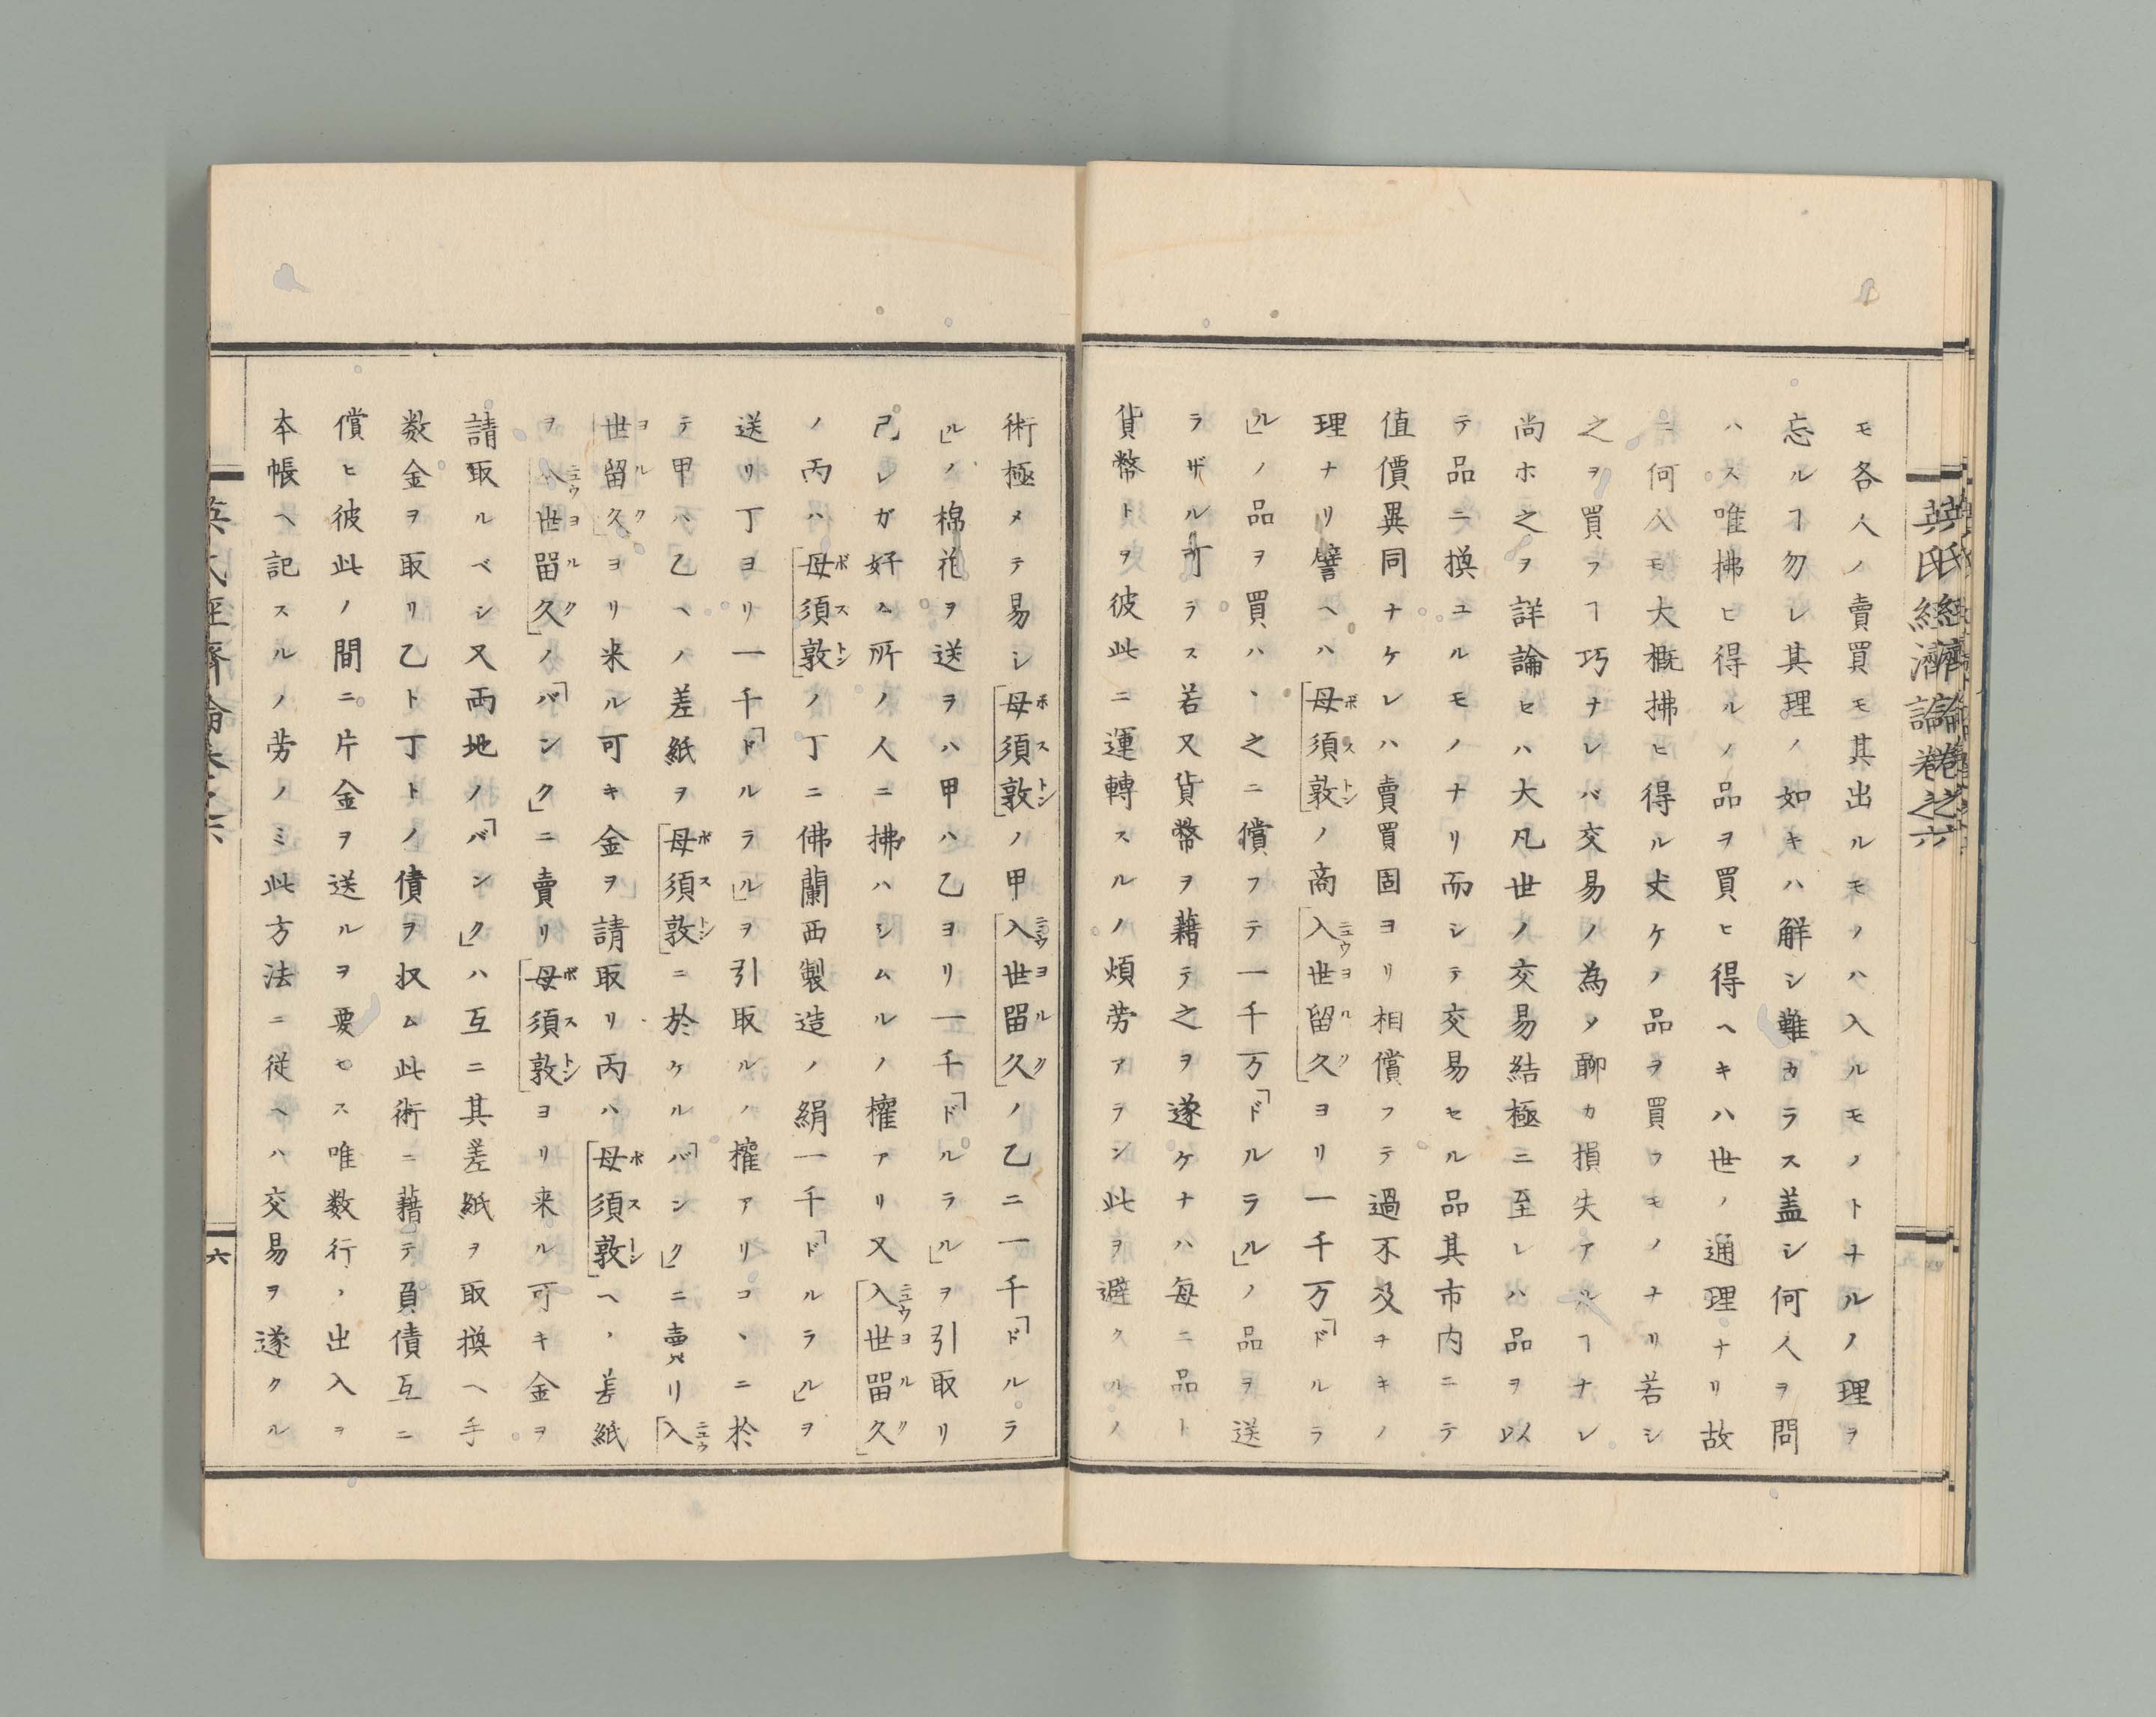 英氏經濟論卷之六
モ各人ノ賣買モ其出ルモノハ入ルモノトナルノ理ヲ
忘ルヿ勿レ其理ノ如キハ解シ難カラス盖シ何人ヲ問
ハス唯拂ヒ得ルノ品ヲ買ヒ得ヘキハ世ノ通理ナリ故
ニ何人モ大概拂ヒ得ル丈ケノ品ヲ買フモノナリ若シ
之ヲ買フヿ巧ナレバ交易ノ為メ聊カ損失アルヿナレ
尚ホ之ヲ詳論セハ大凡世ノ交易結極ニ至レハ品ヲ以
テ品ニ換ユルモノナリ而シテ交易セル品其市内ニテ
値價異同ナケレハ賣買固ヨリ相償フテ過不及ヲキノ
理ナリ譬ヘハ母須敦ノ商入世留久ヨリ一千万「ドルラ
ル」ノ品ヲ買ハヽ之ニ償フテ一千万「ドルラル」ノ品ヲ送
ラザル可ラス若又貨幣ヲ藉テ之ヲ遂ケナハ毎ニ品ト
貨幣トヲ彼此ニ運轉スルノ煩労アラン此ヲ避クルノ
術極メテ易シ母須敦ノ甲入世留久ノ乙ニ一千「ドルラ
ル」ノ棉花ヲ送ヲハ甲ハ乙ヨリ一千「ドルラル」ヲ引取リ
己レガ好ム所ノ人ニ拂ハシムルノ權アリ又入世留久
ノ丙ハ母須敦ノ丁ニ佛蘭西製造ノ絹一千「ドルラル」ヲ
送リ丁ヨリ一千「ドルラル」ヲ引取ルノ權アリコヽニ於
テ甲ハ乙ヘノ差紙ヲ母須敦ニ於ケル「バンク」ニ賣リ入
世留久ヨリ来ル可キ金ヲ請取リ丙ハ母須敦ヘノ差紙
ヲ入世留久ノ「バンク」ニ賣リ母須敦ヨリ来ル可キ金ヲ
請取ルベシ又両地ノ「バンク」ハ互ニ其差紙ヲ取換ヘ手
数金ヲ取リ乙ト丁トノ債ヲ収ム此術ニ藉テ負債互ニ
償ヒ彼此ノ間ニ片金ヲ送ルヲ要セス唯数行ノ出入ヲ
本帳ヘ記スルノ労ノミ此方法ニ従ヘハ交易ヲ遂クル
英氏經濟論卷之六
六